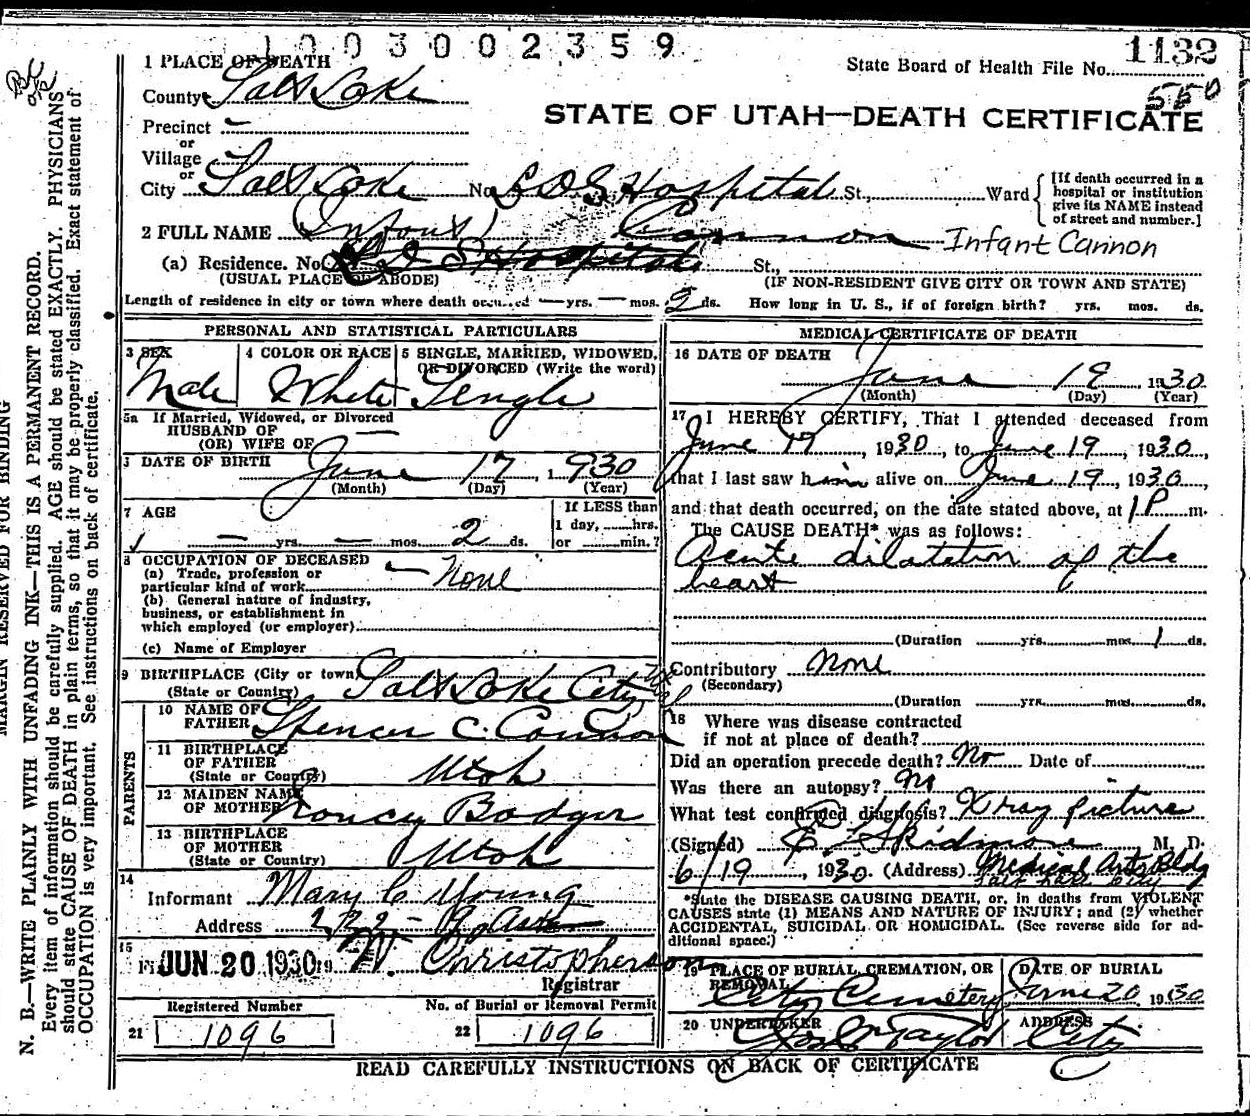 1003000 2359
1132
State Board of Health File No.
550
1 PLACE OF DEATH
County Salt Lake
STATE OF UTAH—DEATH CERTIFICATE
Precinct —
or
Village
or
City Salt Lake No. L D S Hospital St., Ward
[If death occurred in a hospital or institution give its NAME instead of street and number.]
2 FULL NAME (Infant) Cannon Infant Cannon
(a) Residence. No. L D S Hospital St.,
(USUAL PLACE OF ABODE) (IF NON-RESIDENT GIVE CITY OR TOWN AND STATE)
Length of residence in city or town where death occurred — yrs. — mos. 2 ds. How long in U. S., if of foreign birth? yrs. mos. ds.
PERSONAL AND STATISTICAL PARTICULARS
3 SEX Male
4 COLOR OR RACE White
5 SINGLE, MARRIED, WIDOWED, OR DIVORCED (Write the word) Single
5a If Married, Widowed, or Divorced
HUSBAND OF —
(OR) WIFE OF
DATE OF BIRTH June 17, 1930
(Month) (Day) (Year)
7 AGE
— yrs. — mos. 2 ds.
If LESS than
1 day, hrs.
or min.?
8 OCCUPATION OF DECEASED
(a) Trade, profession or
particular kind of work — None
(b) General nature of industry,
business, or establishment in
which employed (or employer)
(c) Name of Employer
9 BIRTHPLACE (City or town) Salt Lake City
(State or Country) Utah
PARENTS
10 NAME OF FATHER Spencer C. Cannon
11 BIRTHPLACE OF FATHER (State or Country) Utah
12 MAIDEN NAME OF MOTHER Nancy Badger
13 BIRTHPLACE OF MOTHER (State or Country) Utah
14
Informant Mary C Young
Address 232 -
15
JUN 20 1930 19 Christopherson
Registrar
Registered Number
21 1096
No. of Burial or Removal Permit
22 1096
MEDICAL CERTIFICATE OF DEATH
16 DATE OF DEATH
June 19, 1930
(Month) (Day) (Year)
17 I HEREBY CERTIFY, That I attended deceased from
June 17, 1930, to June 19, 1930,
that I last saw him alive on June 19, 1930,
and that death occurred, on the date stated above, at 1 P m.
The CAUSE DEATH* was as follows:
Acute dilatation of the
heart
(Duration yrs. mos. 1 ds.
Contributory None
(Secondary)
(Duration yrs. mos. ds.
18 Where was disease contracted
if not at place of death?
Did an operation precede death? No Date of
Was there an autopsy? No
What test confirmed diagnosis? Xray picture
(Signed) E. Skidmore M. D.
6/19, 1930. (Address) Medical Arts Bldg
Salt Lake City
*State the DISEASE CAUSING DEATH, or, in deaths from VIOLENT
CAUSES state (1) MEANS AND NATURE OF INJURY; and (2) whether
ACCIDENTAL, SUICIDAL OR HOMICIDAL. (See reverse side for ad-
ditional space.)
19 PLACE OF BURIAL, CREMATION, OR REMOVAL City Cemetery
DATE OF BURIAL June 20 1930
20 UNDERTAKER Taylor
ADDRESS City
READ CAREFULLY INSTRUCTIONS ON BACK OF CERTIFICATE
MARGIN RESERVED FOR BINDING
N. B.—WRITE PLAINLY WITH UNFADING INK—THIS IS A PERMANENT RECORD.
Every item of information should be carefully supplied. AGE should be stated EXACTLY. PHYSICIANS
should state CAUSE OF DEATH in plain terms, so that it may be properly classified. Exact statement of
OCCUPATION is very important. See instructions on back of certificate.